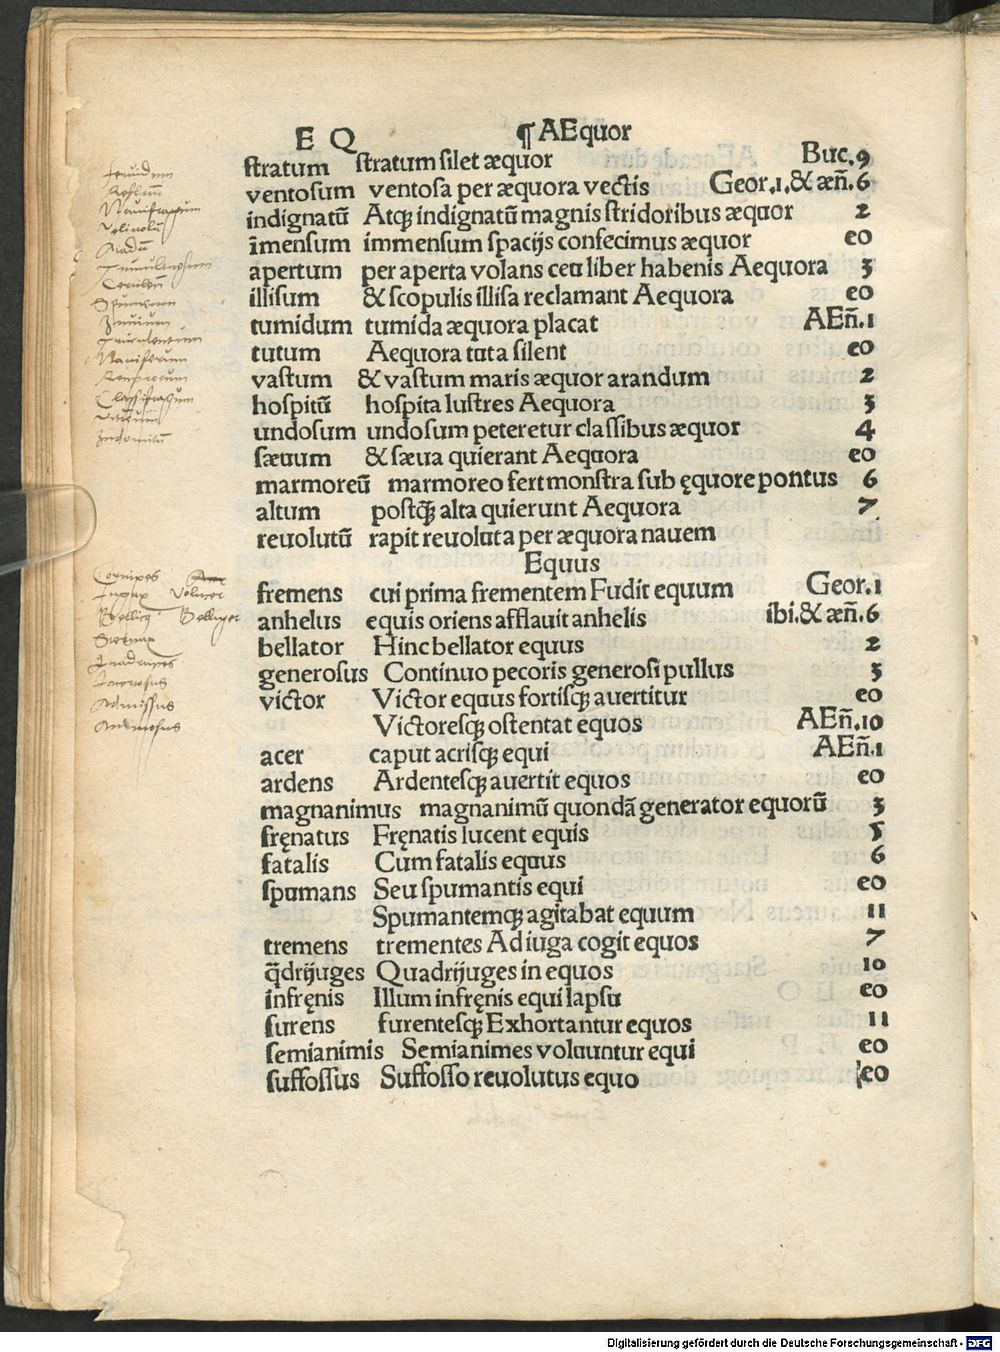 E Q ¶ AEquor
stratum stratum silet æquor Buc.9
ventosum ventosa per æquora vectis Geor.1.& æn̄.6
indignatū Atq; indignatū magnis stridoribus æquor 2
īmensum immensum spacijs confecimus æquor eo
apertum per aperta volans ceu liber habenis Aequora 3
illisum & scopulis illisa reclamant Aequora eo
tumidum tumida æquora placat AEn̄.1
tutum Aequora tuta silent eo
vastum & vastum maris æquor arandum 2
hospitū hospita lustres Aequora 3
undosum undosum peteretur classibus æquor 4
sæuum & sæua quierant Aequora eo
marmoreū marmoreo fert monstra sub ęquore pontus 6
altum postq̃ alta quierunt Aequora 7
reuolutū rapit reuoluta per æquora nauem
Equus
fremens cui prima frementem Fudit equum Geor.1
anhelus equis oriens afflauit anhelis ibi.& æn̄.6
bellator Hinc bellator equus 2
generosus Continuo pecoris generosi pullus 3
victor Victor equus fortisq; auertitur eo
Victoresq; ostentat equos AEn̄.10
acer caput acrisq; equi AEn̄.1
ardens Ardentesq; auertit equos eo
magnanimus magnanimū quondā generator equorū 3
fręnatus Fręnatis lucent equis 5
fatalis Cum fatalis equus 6
spumans Seu spumantis equi eo
Spumantemq; agitabat equum 11
tremens trementes Ad iuga cogit equos 7
q̄drijuges Quadrijuges in equos 10
infręnis Illum infręnis equi lapsu eo
furens furentesq; Exhortantur equos 11
semianimis Semianimes voluuntur equi eo
suffossus Suffosso reuolutus equo eo
Cornipes
Volucer
Belliger
Quadrupes
Admissus
Animosus
Digitalisierung gefördert durch die Deutsche Forschungsgemeinschaft - DFG